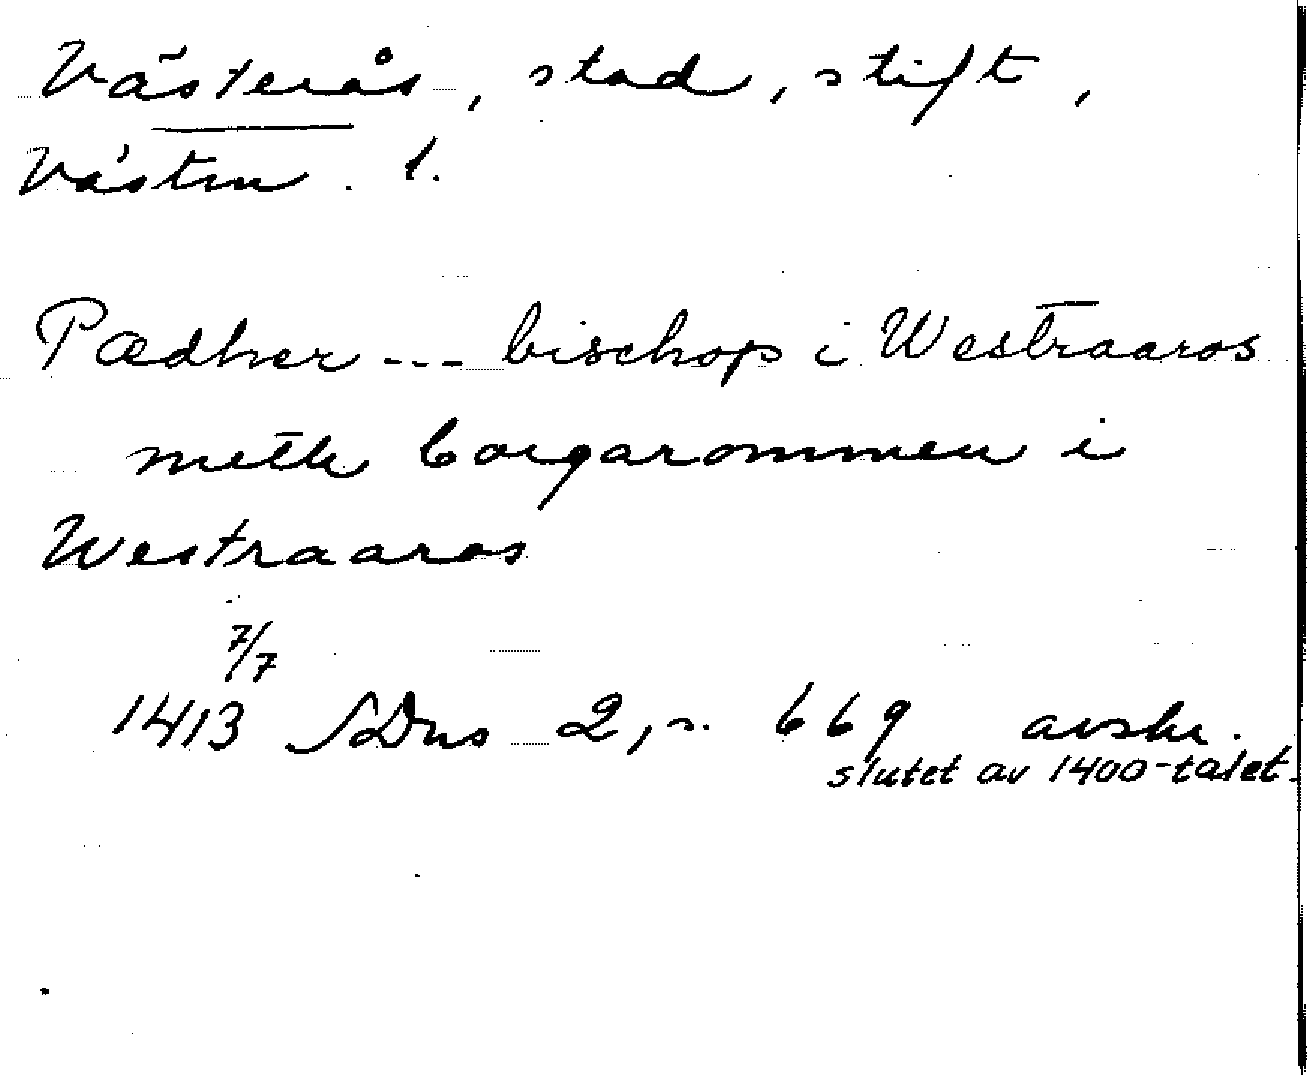 Västerås, stad, stift,
Västm. l.
Pædher --- bischop i Westraaros
meth borgarommen i
Westraaros
7/7
1413 SDns 2, s. 669 avskr.
slutet av 1400-talet.